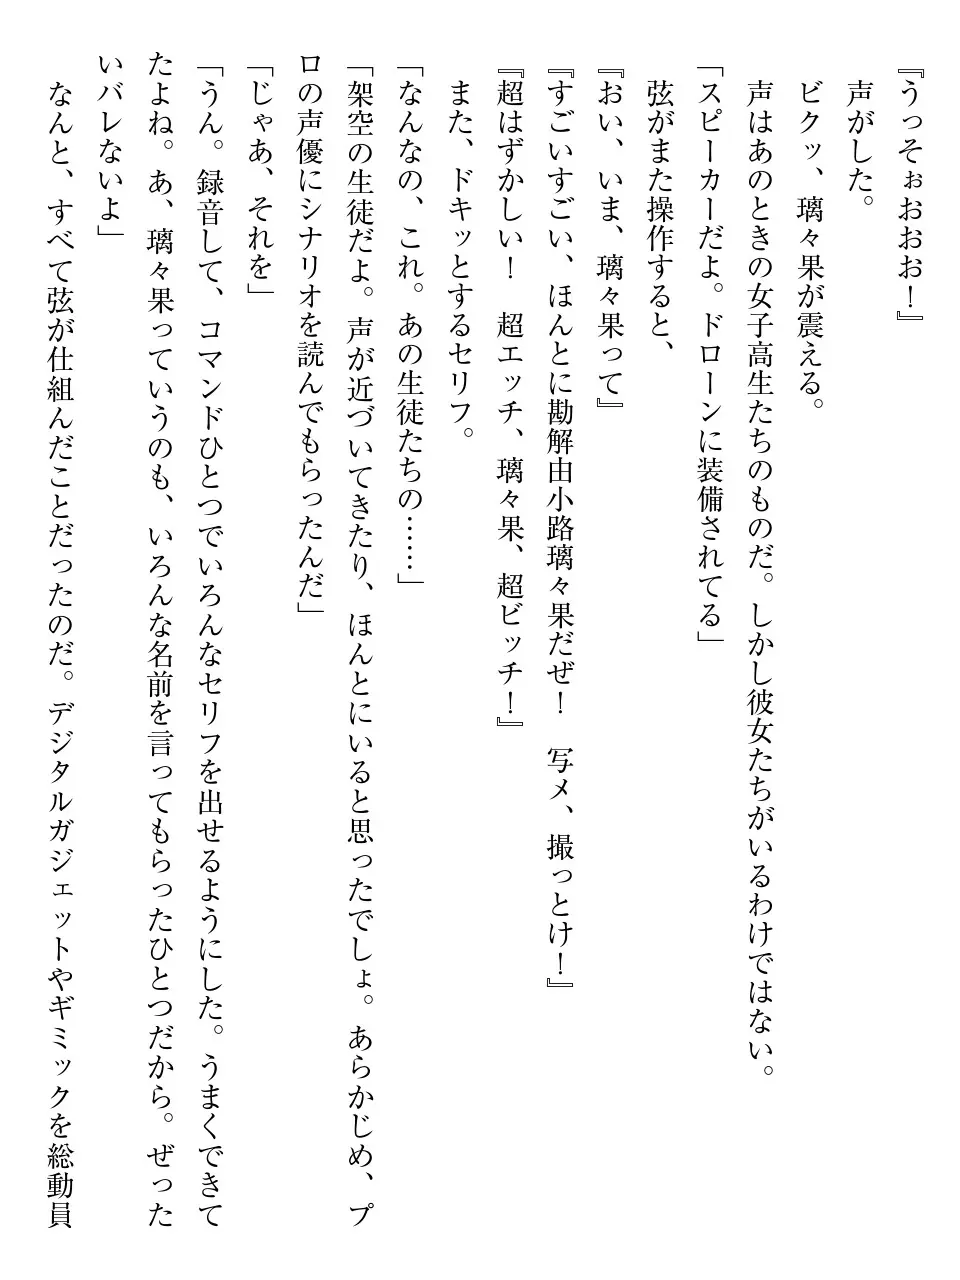 『うっそぉおおお！』
声がした。
ビクッ、璃々果が震える。
声はあのときの女子高生たちのものだ。しかし彼女たちがいるわけではない。
「スピーカーだよ。ドローンに装備されてる」
弦がまた操作すると、
『おい、いま、璃々果って』
『すごいすごい、ほんとに勘解由小路璃々果だぜ！　写メ、撮っとけ！』
『超はずかしい！　超エッチ、璃々果、超ビッチ！』
また、ドキッとするセリフ。
「なんなの、これ。あの生徒たちの……」
「架空の生徒だよ。声が近づいてきたり、ほんとにいると思ったでしょ。あらかじめ、プ
ロの声優にシナリオを読んでもらったんだ」
「じゃあ、それを」
「うん。録音して、コマンドひとつでいろんなセリフを出せるようにした。うまくできて
たよね。あ、璃々果っていうのも、いろんな名前を言ってもらったひとつだから。ぜった
いバレないよ」
なんと、すべて弦が仕組んだことだったのだ。デジタルガジェットやギミックを総動員